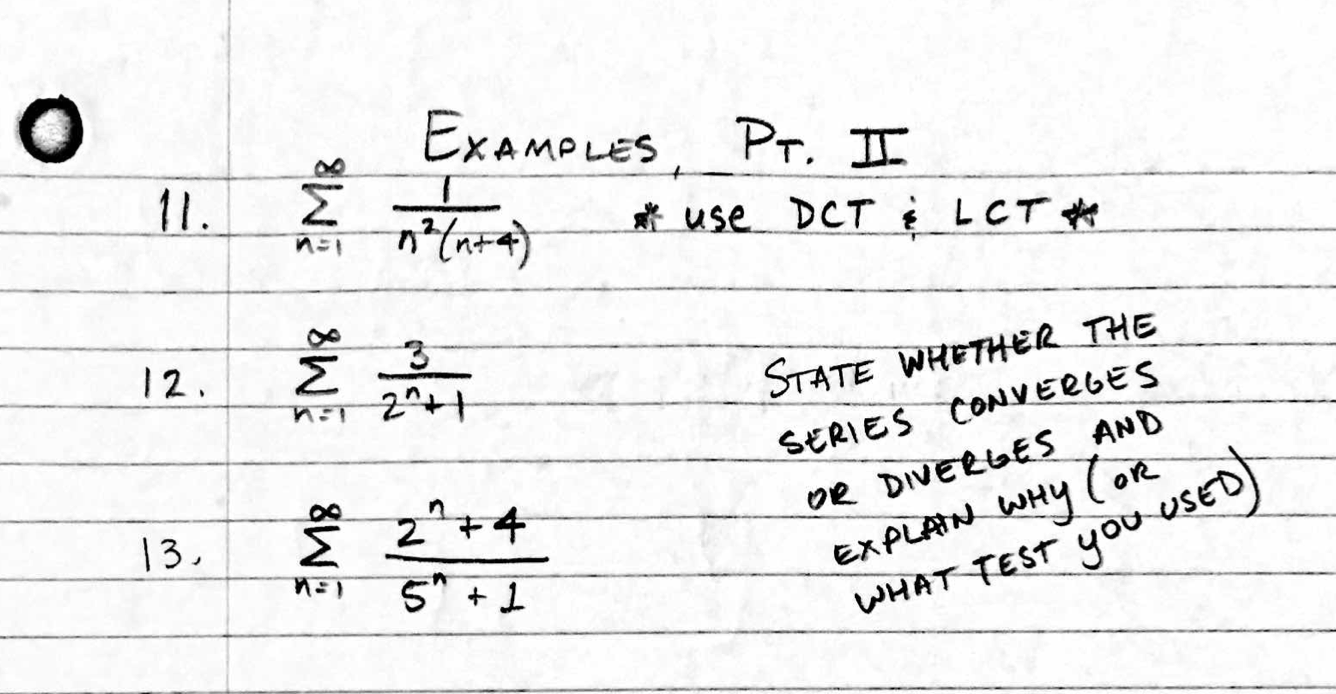 EXAMPLES, PT. II
11. ∞ Σ n=1 1/(n²(n+4)) * use DCT & LCT *
12. ∞ Σ n=1 3/(2ⁿ+1)
13. ∞ Σ n=1 (2ⁿ+4)/(5ⁿ+1)
STATE WHETHER THE
SERIES CONVERGES
OR DIVERGES AND
EXPLAIN WHY (OR
WHAT TEST YOU USED)